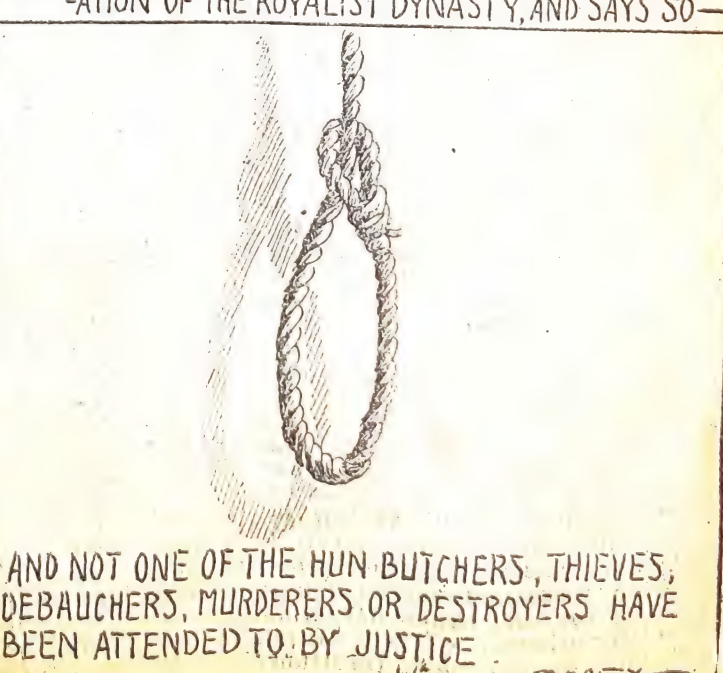 -ATION OF THE ROYALIST DYNASTY, AND SAYS SO—
AND NOT ONE OF THE HUN BUTCHERS, THIEVES,
DEBAUCHERS, MURDERERS OR DESTROYERS HAVE
BEEN ATTENDED TO BY JUSTICE.